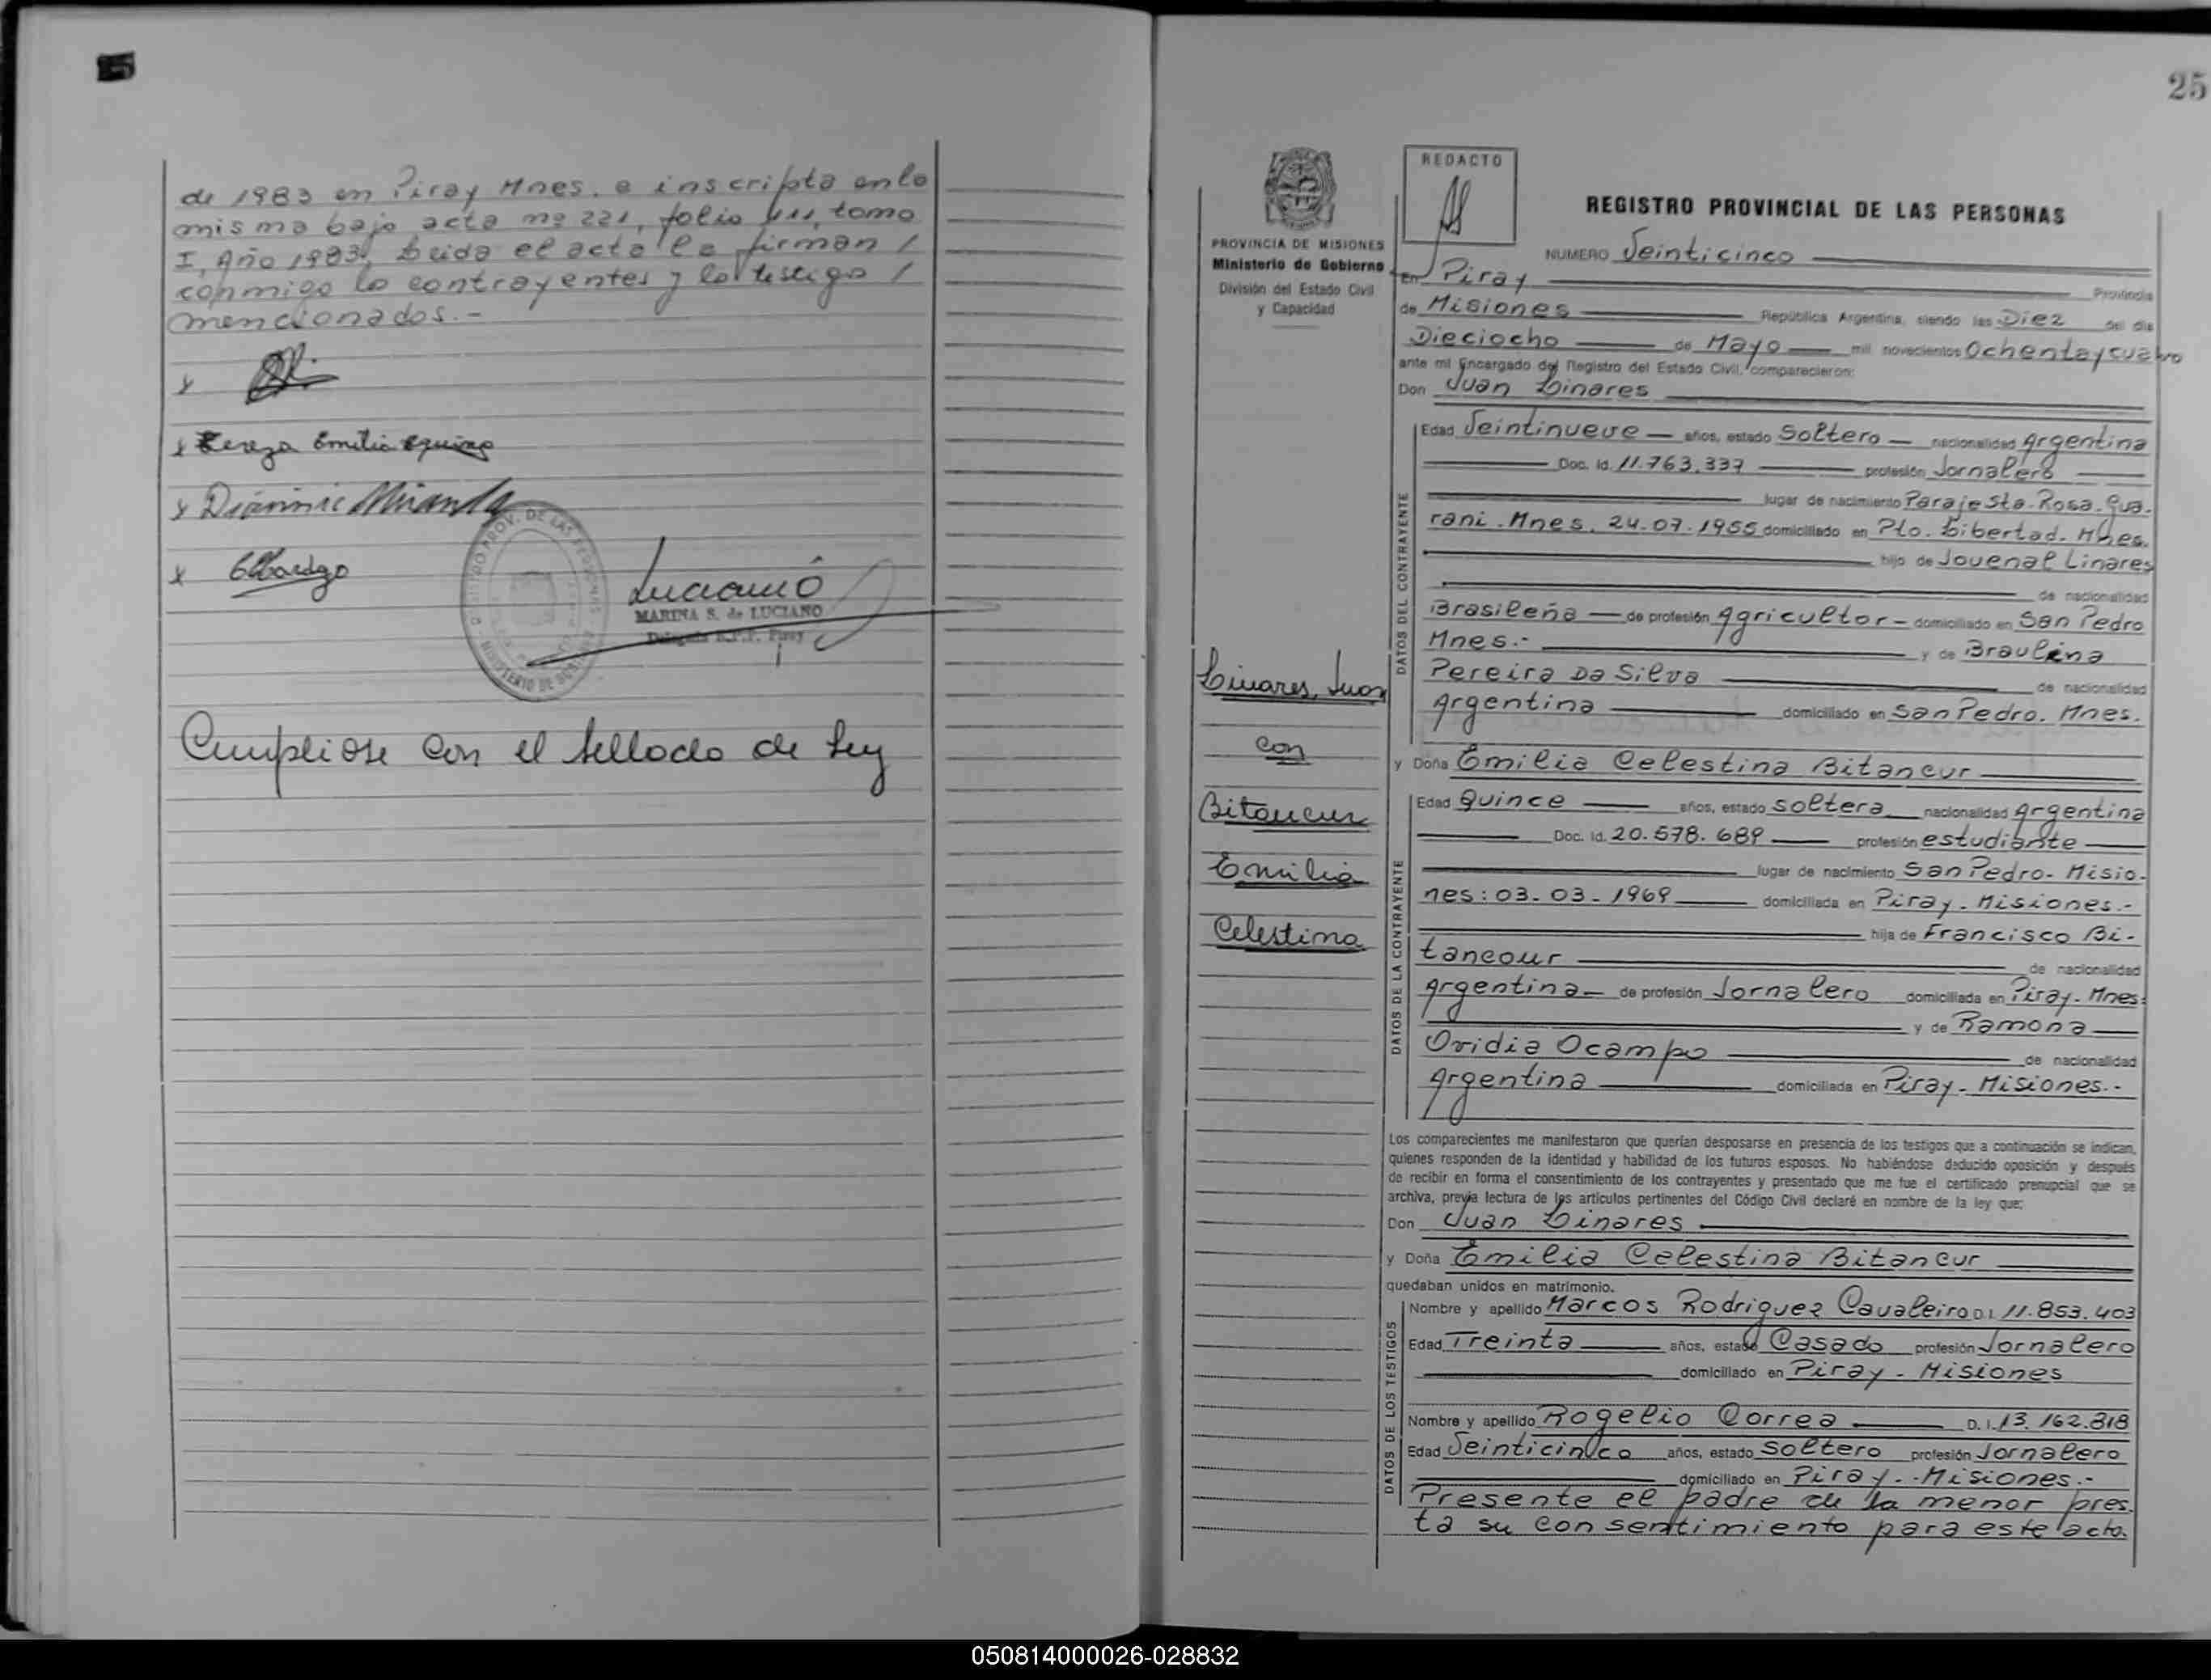 de 1983 en Piray Mnes. e inscripta en la
misma bajo acta nº 221, folio 111, tomo
I, Año 1983. Leida el acta la firman /
conmigo lo contrayentes y los testigo /
mencionados.-
x
x Tereza Emilia
x Dionnic Miranda
x
REGISTRO PROV. DE LAS PERSONAS
MINISTERIO DE GOBIERNO
Luciano
MARINA S. de LUCIANO
Delegada R.P.P. Piray
Cumpliose con el sellado de Ley
25
REDACTO
REGISTRO PROVINCIAL DE LAS PERSONAS
PROVINCIA DE MISIONES
Ministerio de Gobierno
División del Estado Civil
y Capacidad
NUMERO Veinticinco
en Piray Provincia
de Misiones República Argentina, siendo las Diez del día
Dieciocho de Mayo mil novecientos Ochenta y cuatro
ante mi Encargado del Registro del Estado Civil, comparecieron:
Don Juan Linares
DATOS DEL CONTRAYENTE
Edad Veintinueve años, estado Soltero nacionalidad Argentina
Doc. Id. 11.763.337 profesión Jornalero
lugar de nacimiento Paraje Sta. Rosa. Gua-
rani. Mnes. 24.07.1955 domiciliado en Pto. Libertad. Mnes.
hijo de Jouenal Linares
de nacionalidad
Brasileña de profesión Agricultor - domiciliado en San Pedro
Mnes.- y de Braulina
Pereira Da Silva de nacionalidad
Argentina domiciliado en San Pedro. Mnes.
Linares, Juan
con
Bitancur
Emilia
Celestina
y Doña Emilia Celestina Bitancur
DATOS DE LA CONTRAYENTE
Edad Quince años, estado soltera nacionalidad Argentina
Doc. Id. 20.578.689 profesión estudiante
lugar de nacimiento San Pedro- Misio-
nes: 03-03-1969 domiciliada en Piray. Misiones.-
hija de Francisco Bi-
tancour de nacionalidad
Argentina de profesión Jornalero domiciliada en Piray- Mnes:
y de Ramona
Ovidia Ocampo de nacionalidad
Argentina domiciliada en Piray- Misiones.-
Los comparecientes me manifestaron que querían desposarse en presencia de los testigos que a continuación se indican,
quienes responden de la identidad y habilidad de los futuros esposos. No habiéndose deducido oposición y después
de recibir en forma el consentimiento de los contrayentes y presentado que me fue el certificado prenupcial que se
archiva, previa lectura de los artículos pertinentes del Código Civil declaré en nombre de la ley que:
Don Juan Linares
y Doña Emilia Celestina Bitancur
quedaban unidos en matrimonio.
DATOS DE LOS TESTIGOS
Nombre y apellido Marcos Rodriguez Cavaleiro D.I. 11.853.403
Edad Treinta años, estado Casado profesión Jornalero
domiciliado en Piray - Misiones
Nombre y apellido Rogelio Correa D.I. 13.162.818
Edad Veinticinco años, estado soltero profesión Jornalero
domiciliado en Piray.-Misiones.-
Presente el padre de la menor pres-
ta su consentimiento para este acto.
050814000026-028832